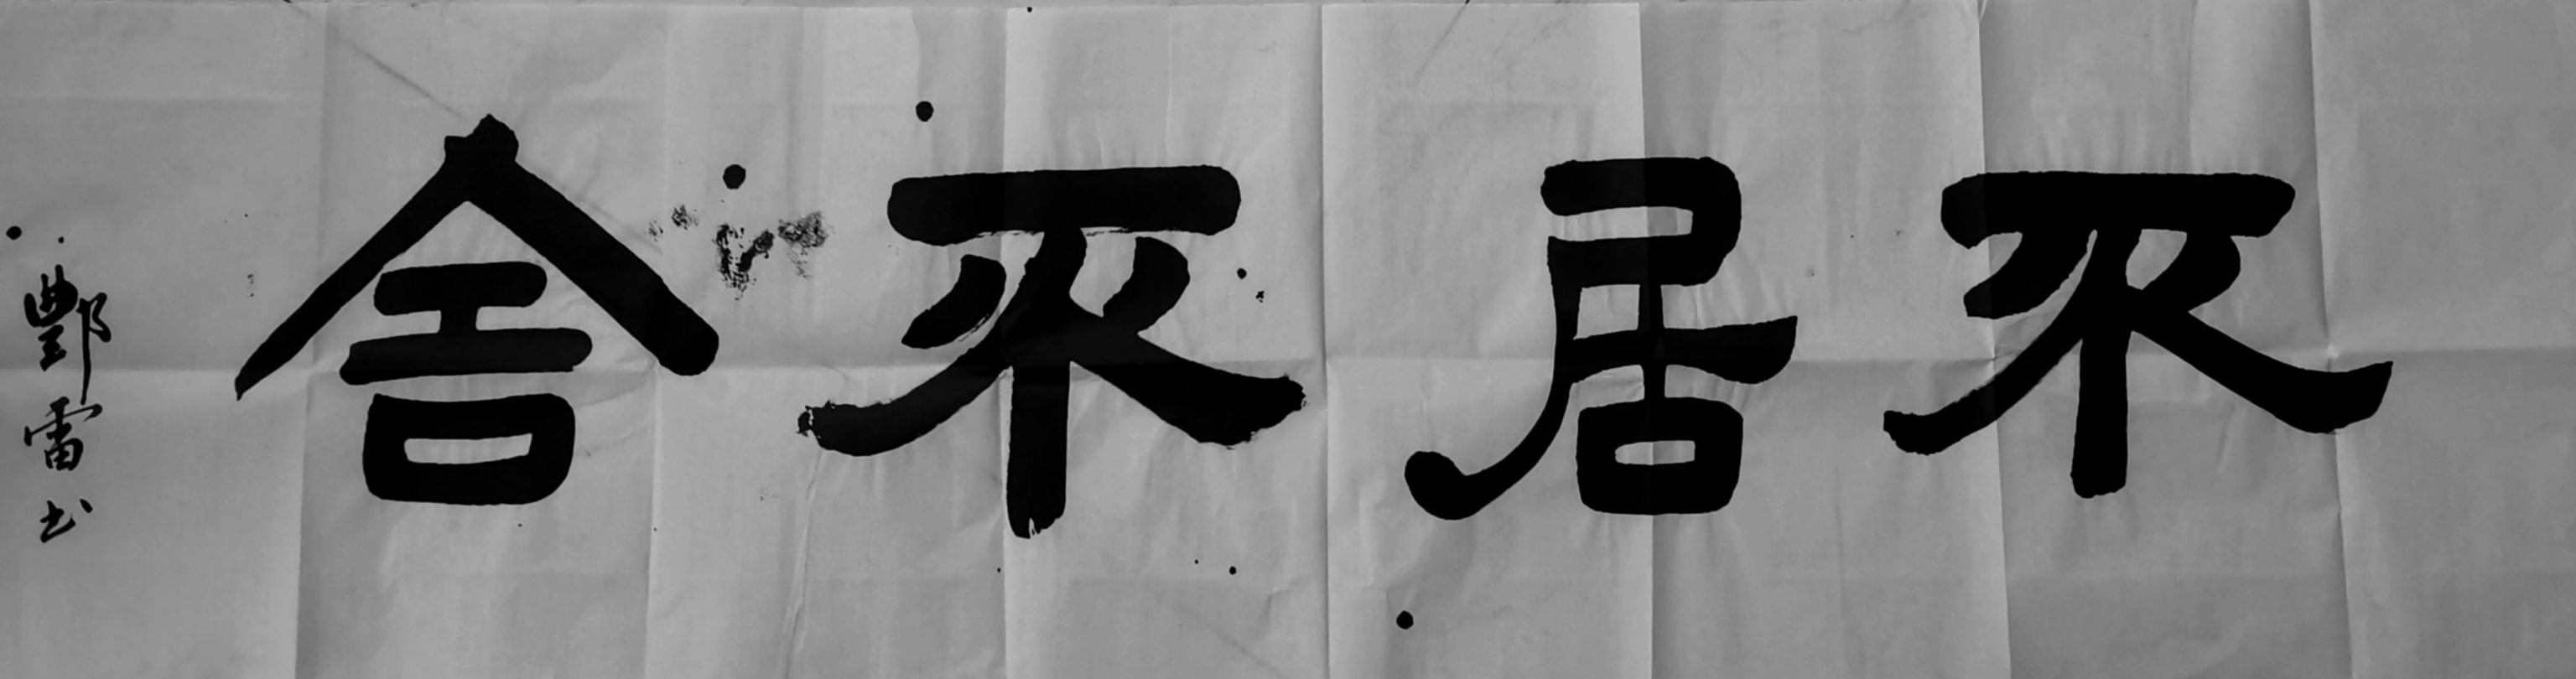 不居不舍
酆雷书